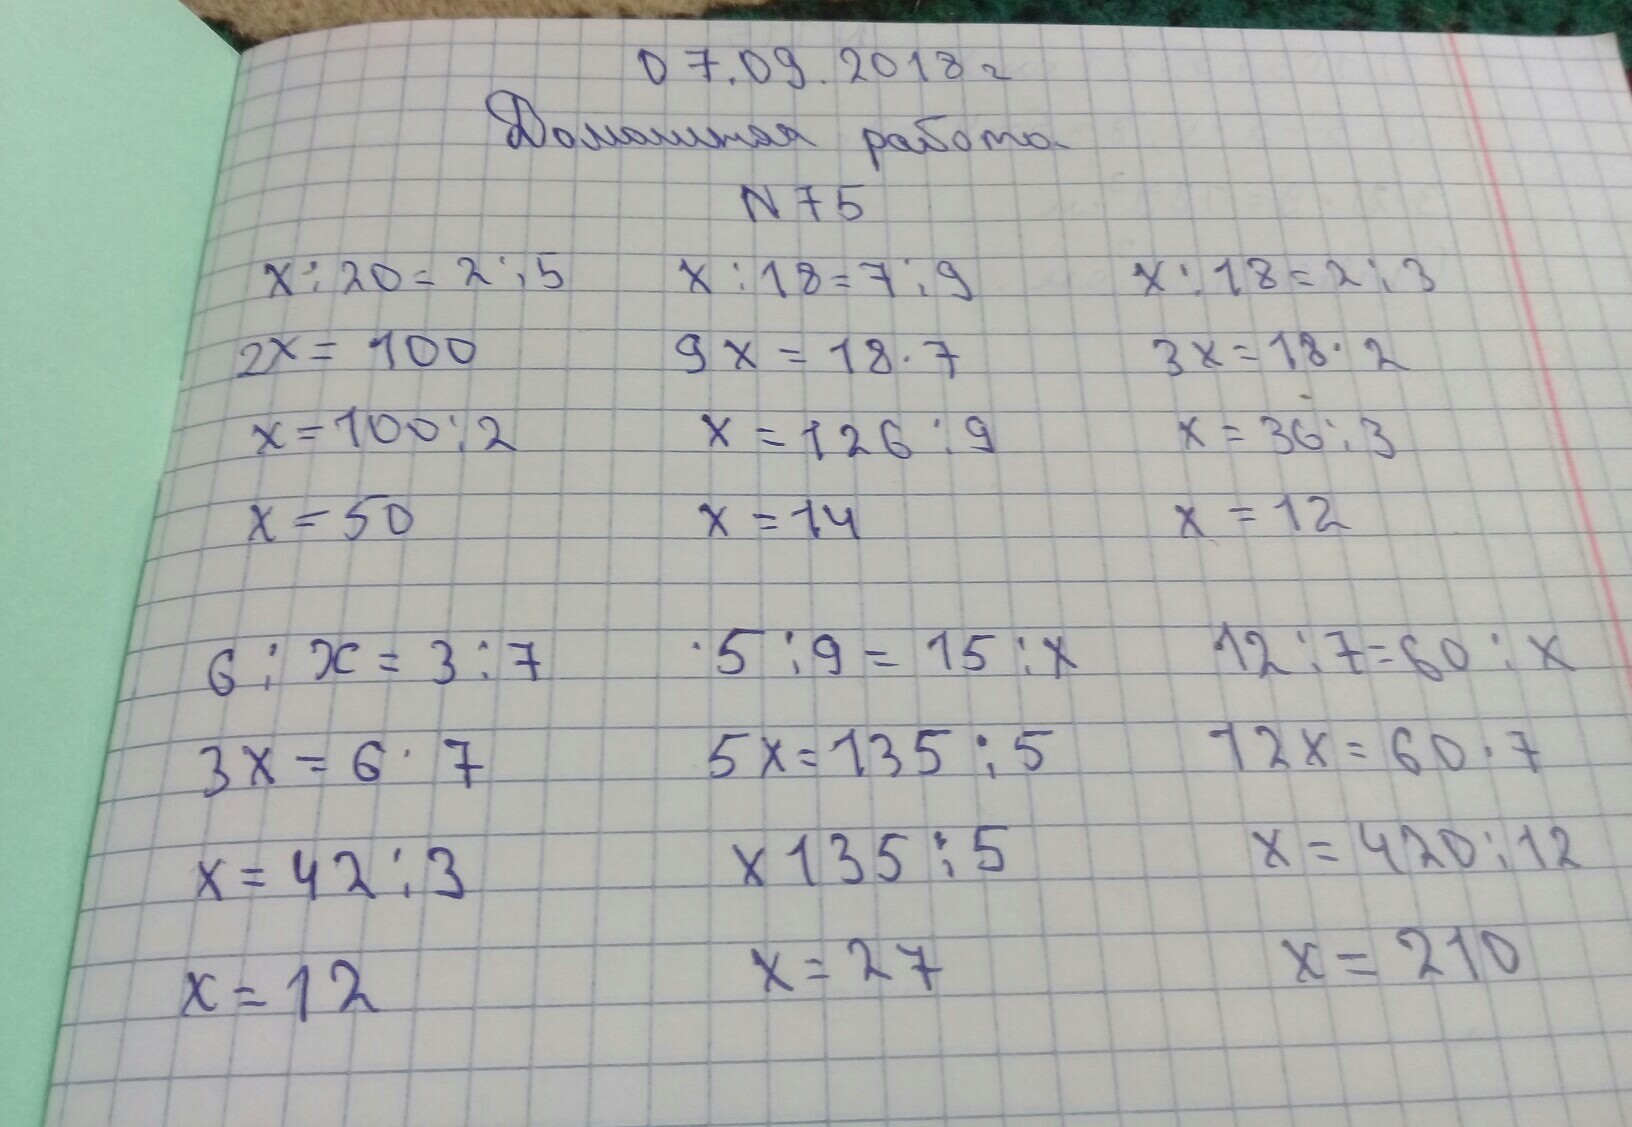 07.09.2018 г
Домашняя работа
N 75
x : 20 = 2 : 5 x : 18 = 7 : 9 x : 18 = 2 : 3
2x = 100 9x = 18 · 7 3x = 18 · 2
x = 100 : 2 x = 126 : 9 x = 36 : 3
x = 50 x = 14 x = 12
6 : x = 3 : 7 5 : 9 = 15 : x 12 : 7 = 60 : x
3x = 6 · 7 5x = 135 : 5 12x = 60 · 7
x = 42 : 3 x 135 : 5 x = 420 : 12
x = 12 x = 27 x = 210